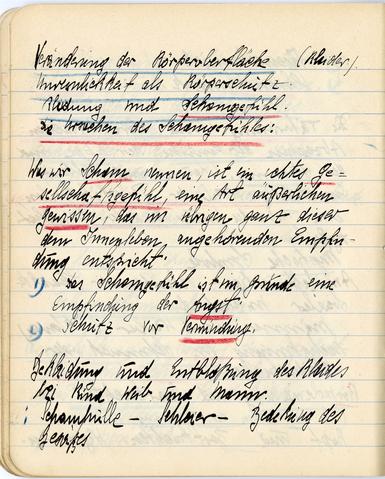 Veränderung der Körperoberfläche (Kleider).
Unreinlichkeit als Körperschutz.
Kleidung und Schamgefühl.
Die Ursachen des Schamgefühles:
Was wir Scham nennen, ist ein echtes Ge-
sellschaftsgefühl, eine Art äußerlichen
Gewissen, das im übrigen ganz dieser
dem Innenleben angehörenden Empfin-
dung entspricht.
9 Das Schamgefühl ist im Grunde eine
Empfindung der Angst.
9 Schutz vor Verwundung.
Bekleidung und Entblößung des Kleides
bei Kind, Weib und Mann.
Schamhülle – Schleier – Bedeckung des
Gesäßes